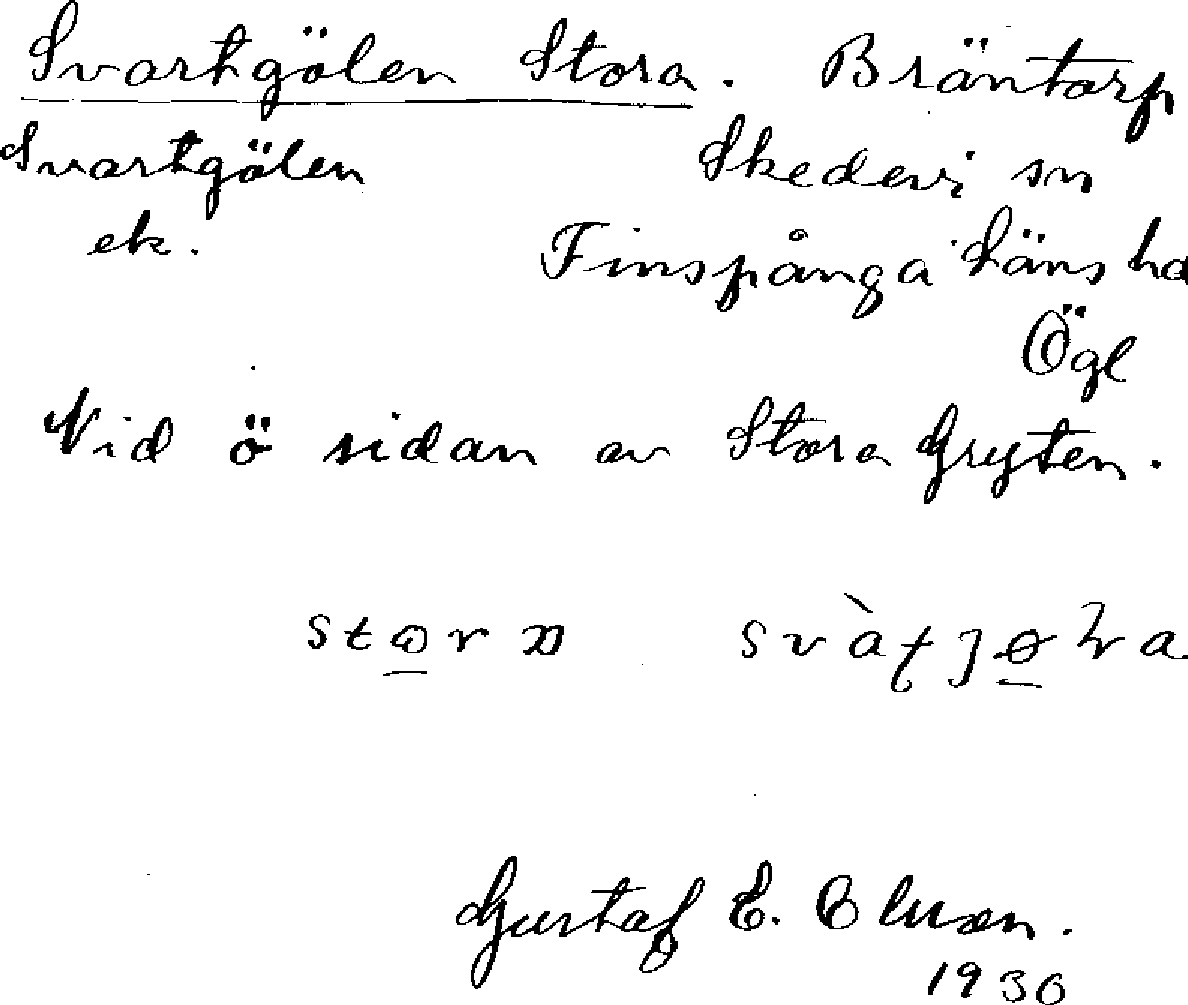 Svartgölen Stora. Bräntorp
Svartgölen Skedevi sn
ek. Finspånga läns hd
Ögl
Vid ö sidan av Stora Gryten.
Gustaf E. 
1930